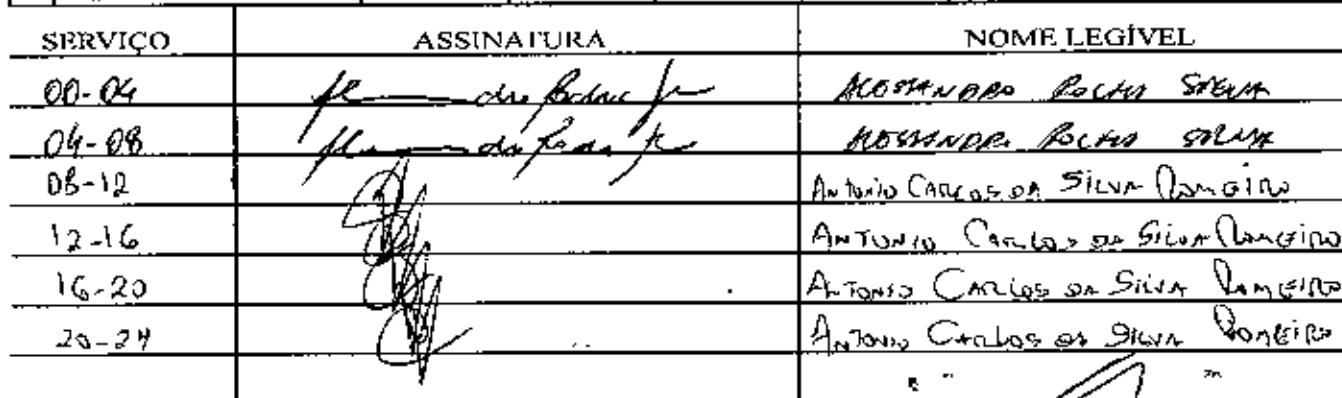 SERVIÇO ASSINATURA NOME LEGÍVEL
00-04 ALESSANDRO ROCHA SILVA
04-08 ALESSANDRO ROCHA SILVA
08-12 ANTONIO CARLOS DA SILVA ROMEIRO
12-16 ANTONIO CARLOS DA SILVA ROMEIRO
16-20 ANTONIO CARLOS DA SILVA ROMEIRO
20-24 ANTONIO CARLOS DA SILVA ROMEIRO